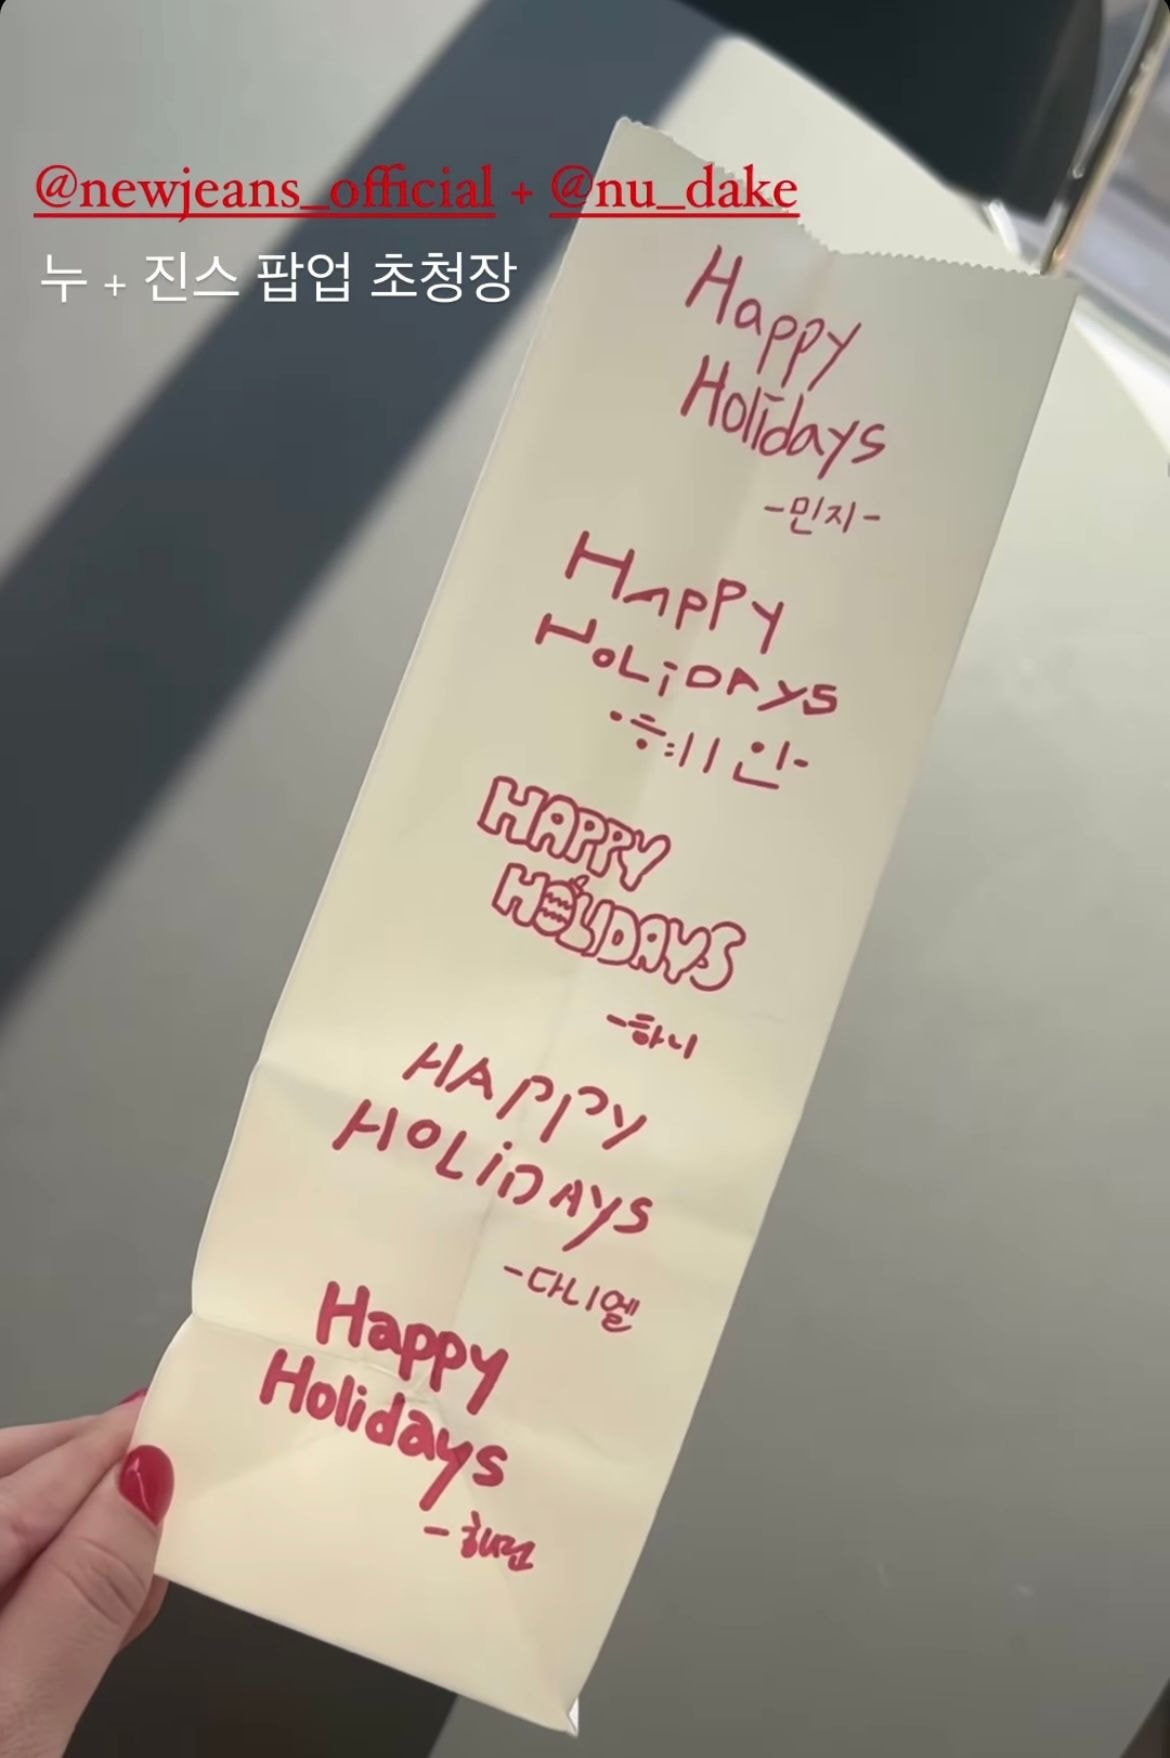 @newjeans_official + @nu_dake
누 + 진스 팝업 초청장
Happy
Holidays
-민지-
HAPPY
HOLiDAYS
·혜인-
HAPPY
HOLIDAYS
-하니
HAPPY
HOLiDAYS
-다니엘
Happy
Holidays
- 해린